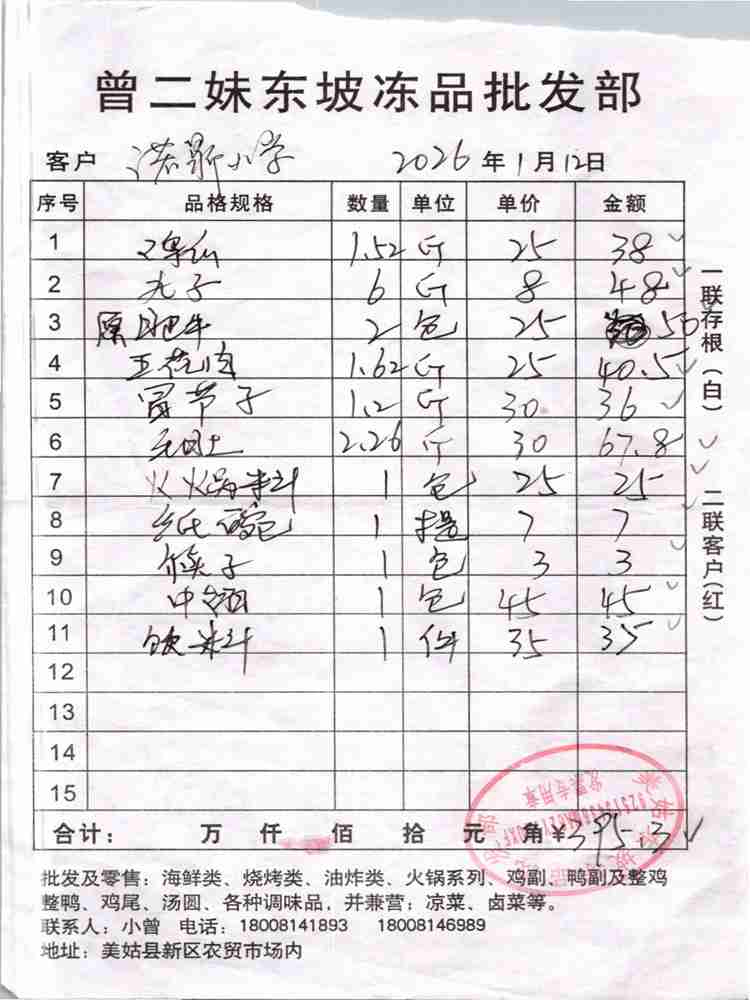 曾二妹东坡冻品批发部
客户 洛 小学 2026 年 1 月 12 日
序号 品格规格 数量 单位 单价 金额
1 1.52 斤 25 38
2 丸子 6 斤 8 48
3 肥牛 2 包 25 50
4 五花肉 1.62 斤 25 40.5
5 节子 1.2 斤 30 36
6 2.26 斤 30 67.8
7 火锅料 1 包 25 25
8 纸碗 1 提 7 7
9 筷子 1 包 3 3
10 中翅 1 包 45 45
11 饮料 1 件 35 35
12
13
14
15
合计: 万 仟 佰 拾 元 角 ¥395.3
一联存根(白) 二联客户(红)
发票专用章
批发及零售:海鲜类、烧烤类、油炸类、火锅系列、鸡副、鸭副及整鸡
整鸭、鸡尾、汤圆、各种调味品,并兼营:凉菜、卤菜等。
联系人:小曾 电话:18008141893 18008146989
地址:美姑县新区农贸市场内